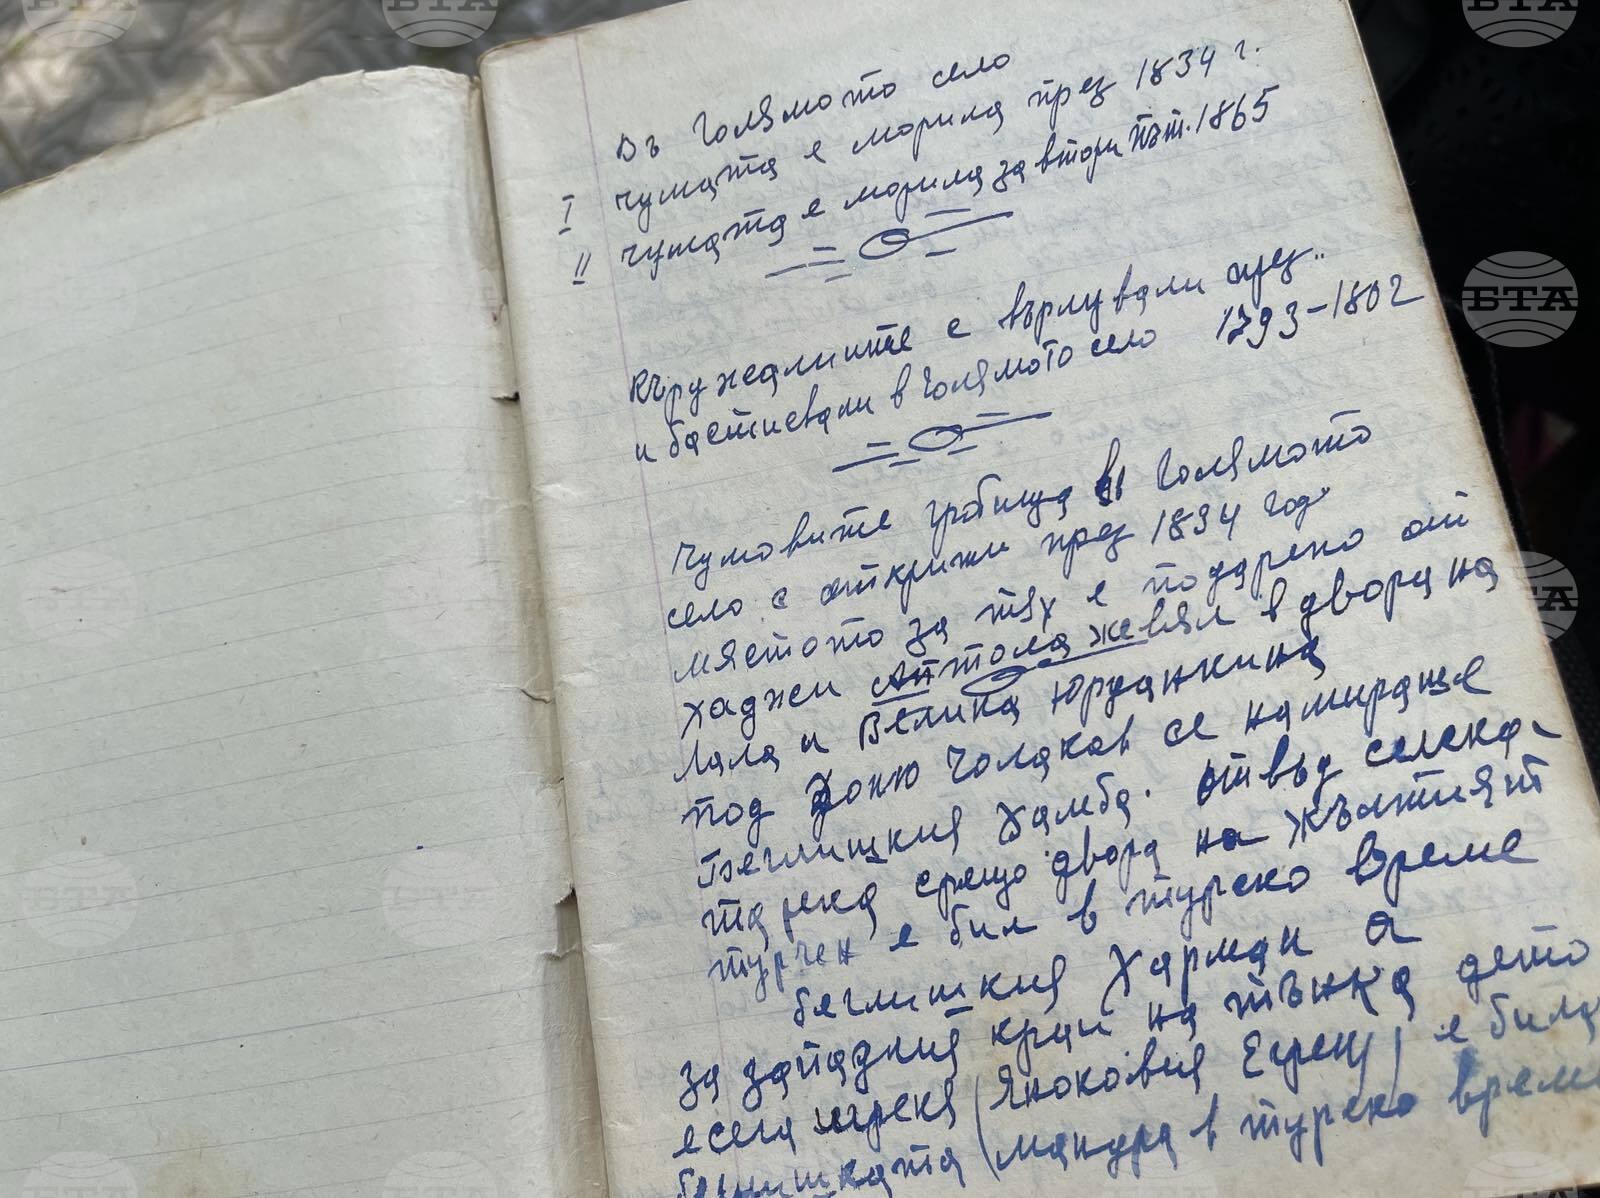 Въ Голямото село
I чумата е морила през 1834 г.
II чумата е морила за втори път. 1865
Кържалиите с върлували през..
и бастисвали в Голямото село 1793-1802
Чумовите гробища въ Голямото
село с открити през 1834 год.
мястото за тях е подарено от
хаджи Аптола живял в двора на
Лала и Велика Юрданкина
под Доню Чолаков се намираше
Беглишкия Хамба. Отвъд селска-
та река срещо двора на жълтият
турчен е бил в турско време
беглишкия Харман а
за западния край на тънка дето
есега
(Янокovия Егрещ) е била
беглишката (мандра в турско време
БТА